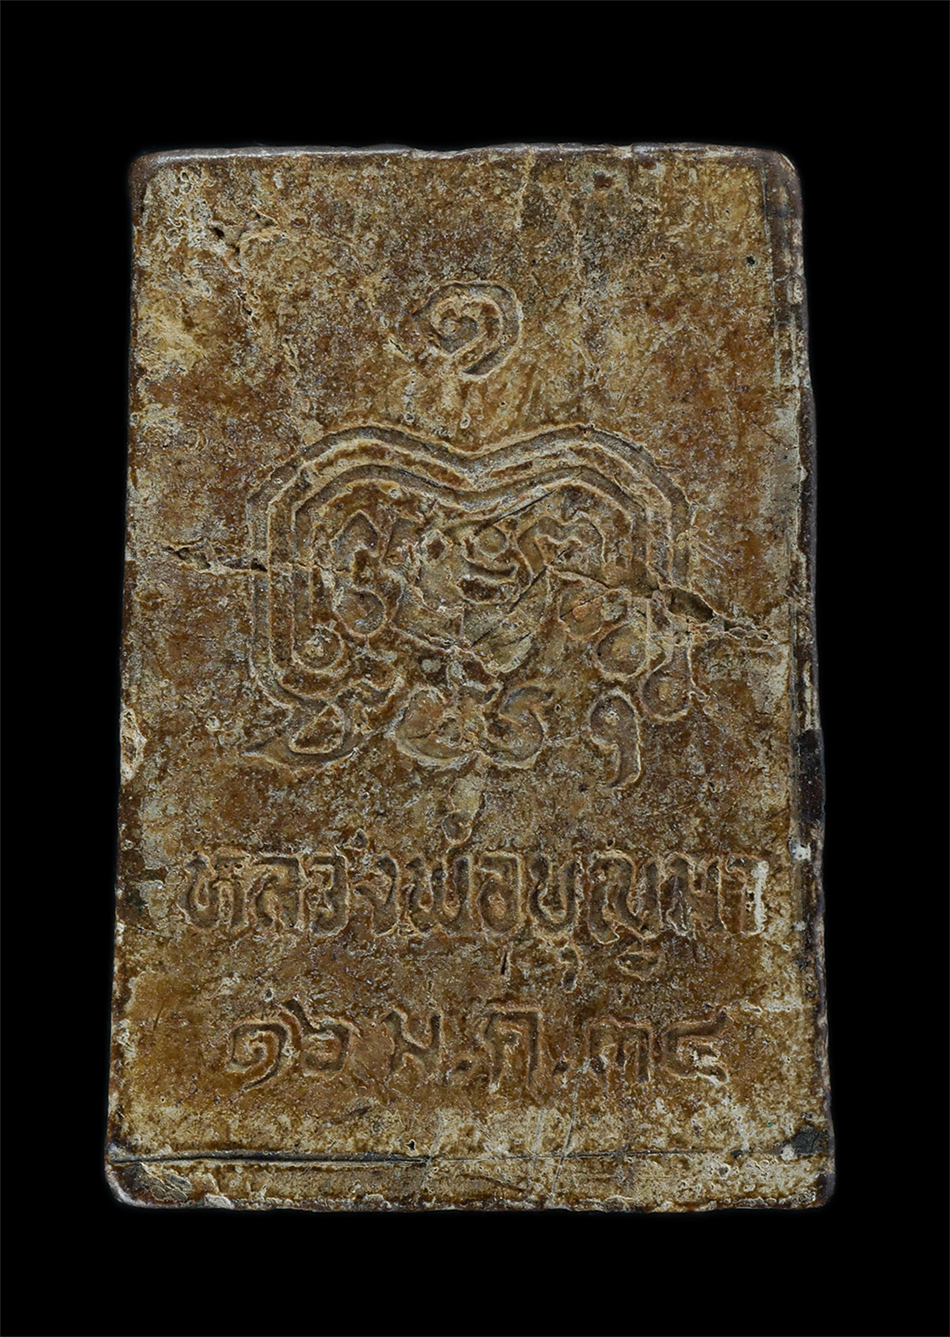 ๑
หลวงพ่อบุญมา
๑๖ ม.ค.๓๔